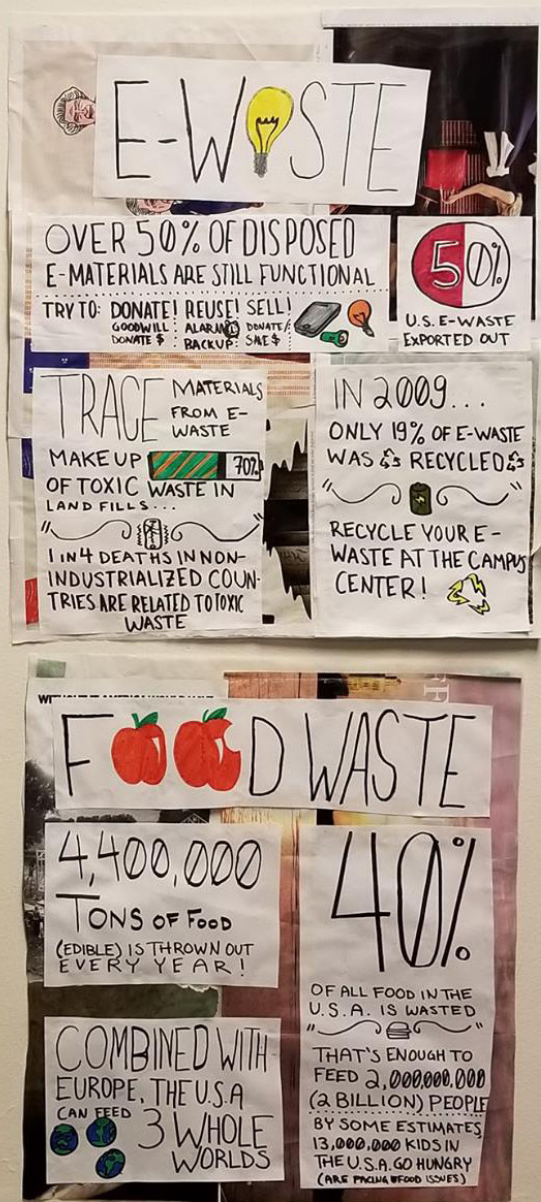 E-WASTE
OVER 50% OF DISPOSED
E-MATERIALS ARE STILL FUNCTIONAL
TRY TO: DONATE! REUSE! SELL!
GOODWILL ALARM DONATE/
DONATE $ BACKUP SAVE $
50%
U.S. E-WASTE
EXPORTED OUT
TRACE MATERIALS
FROM E-
WASTE
MAKE UP 70%
OF TOXIC WASTE IN
LAND FILLS...
1 IN 4 DEATHS IN NON-
INDUSTRIALIZED COUN-
TRIES ARE RELATED TO TOXIC
WASTE
IN 2009...
ONLY 19% OF E-WASTE
WAS RECYCLED
RECYCLE YOUR E-
WASTE AT THE CAMPUS
CENTER!
FOOD WASTE
4,400,000
TONS OF FOOD
(EDIBLE) IS THROWN OUT
EVERY YEAR!
40%
OF ALL FOOD IN THE
U.S.A. IS WASTED
THAT'S ENOUGH TO
FEED 2,000,000,000
(2 BILLION) PEOPLE
BY SOME ESTIMATES,
13,000,000 KIDS IN
THE U.S.A. GO HUNGRY
(ARE FACING FOOD ISSUES)
COMBINED WITH
EUROPE, THE U.S.A
CAN FEED 3 WHOLE
WORLDS